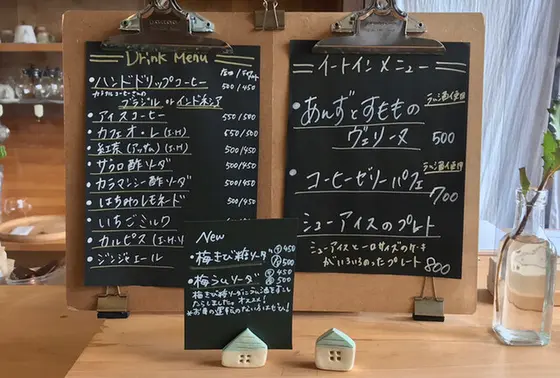 Drink Menu
店内/テイクアウト
・ハンドドリップコーヒー 500/450
ブラジル or インドネシア
アイスコーヒー 550/500
カフェオ・レ (I・H) 550/500
紅茶(アッサム)(I・H) 500/450
ザクロ酢ソーダ 500/450
カラマンシー酢ソーダ 500/450
はちみつレモネード 500/450
いちごミルク
カルピス (I・H)
ジンジャエール
イートインメニュー
・あんずとすももの ラム酒使用
ヴェリーヌ 500
・コーヒーゼリーパフェ ラム酒使用
700
シューアイスのプレート
シューアイスと一口サイズのケーキ
がいろいろのったプレート 800
New
・梅きび糖ソーダ 450
500
・梅らムソーダ 450
500
梅きび糖ソーダにラム酒を少し
たらしました。オススメ!
※お車の運転のない方はぜひ!